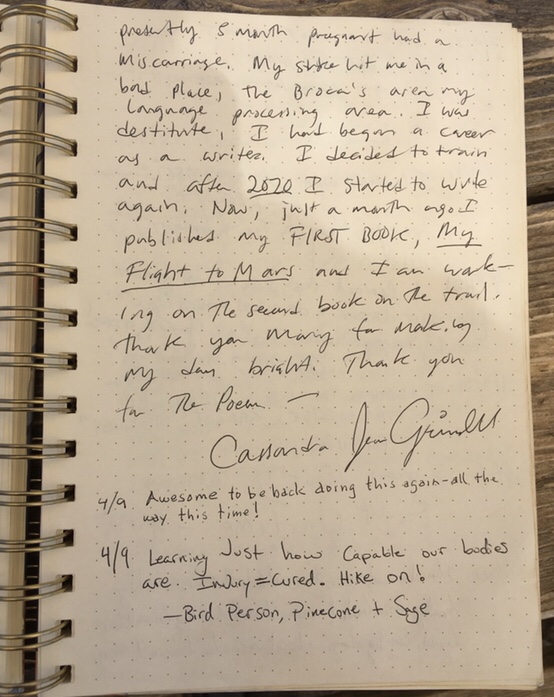 presently 5 month pregnant had a
miscarriage. My stroke hit me in a
bad place, the Broca's area my
language processing area. I was
destitute, I had began a career
as a writer. I decided to train
and after 2020 I started to write
again. Now, just a month ago I
published my FIRST BOOK, My
Flight to Mars and I am work-
ing on the second book on the trail.
Thank you for making
my day bright. Thank you
for The Poem —
Cassandra Jean
4/9 Awesome to be back doing this again-all the
way this time!
4/9 Learning Just how Capable our bodies
are. Injury = Cured. Hike on!
—Bird Person, Pinecone + Sage